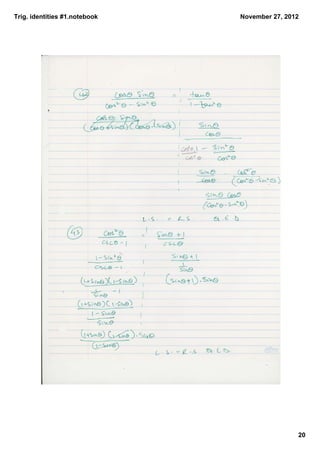 Trig. identities #1.notebook November 27, 2012
cosθ sinθ / cos²θ - sin²θ = tanθ / 1 - tan²θ
cosθ sinθ / (cosθ + sinθ)(cosθ - sinθ) | sinθ / cosθ
cos²θ / cos²θ - sin²θ / cos²θ
sinθ / cosθ cos²θ / (cos²θ - sin²θ)
sinθ cosθ / (cos²θ - sin²θ)
L.S. = R.S Q.E.D
cos²θ / cscθ - 1 = sinθ + 1 / cscθ
1 - sin²θ / cscθ - 1 | sinθ + 1 / 1 / sinθ
(1+sinθ)(1-sinθ) / 1 / sinθ - 1 | (sinθ + 1) . sinθ
(1+sinθ)(1-sinθ) / 1 - sinθ / sinθ
(1+sinθ)(1-sinθ) . sinθ / (1-sinθ)
L.S. = R.S Q.E.D
20